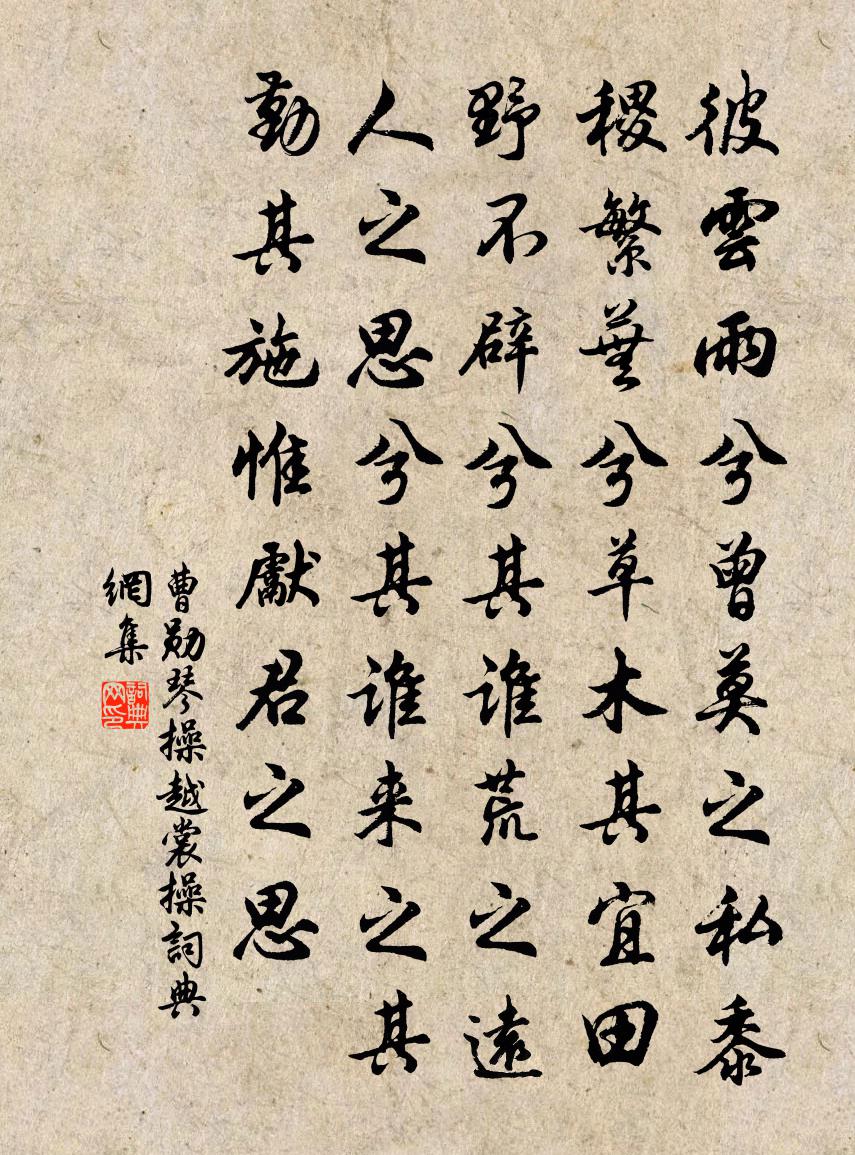 彼雲雨兮曾莫之私黍
稷繁蕪兮草木其宜田
野不辟兮其誰荒之遠
人之思兮其誰来之其
勤其施惟獻君之思
曹勛琴操越裳操詞典
網集
詞典網印